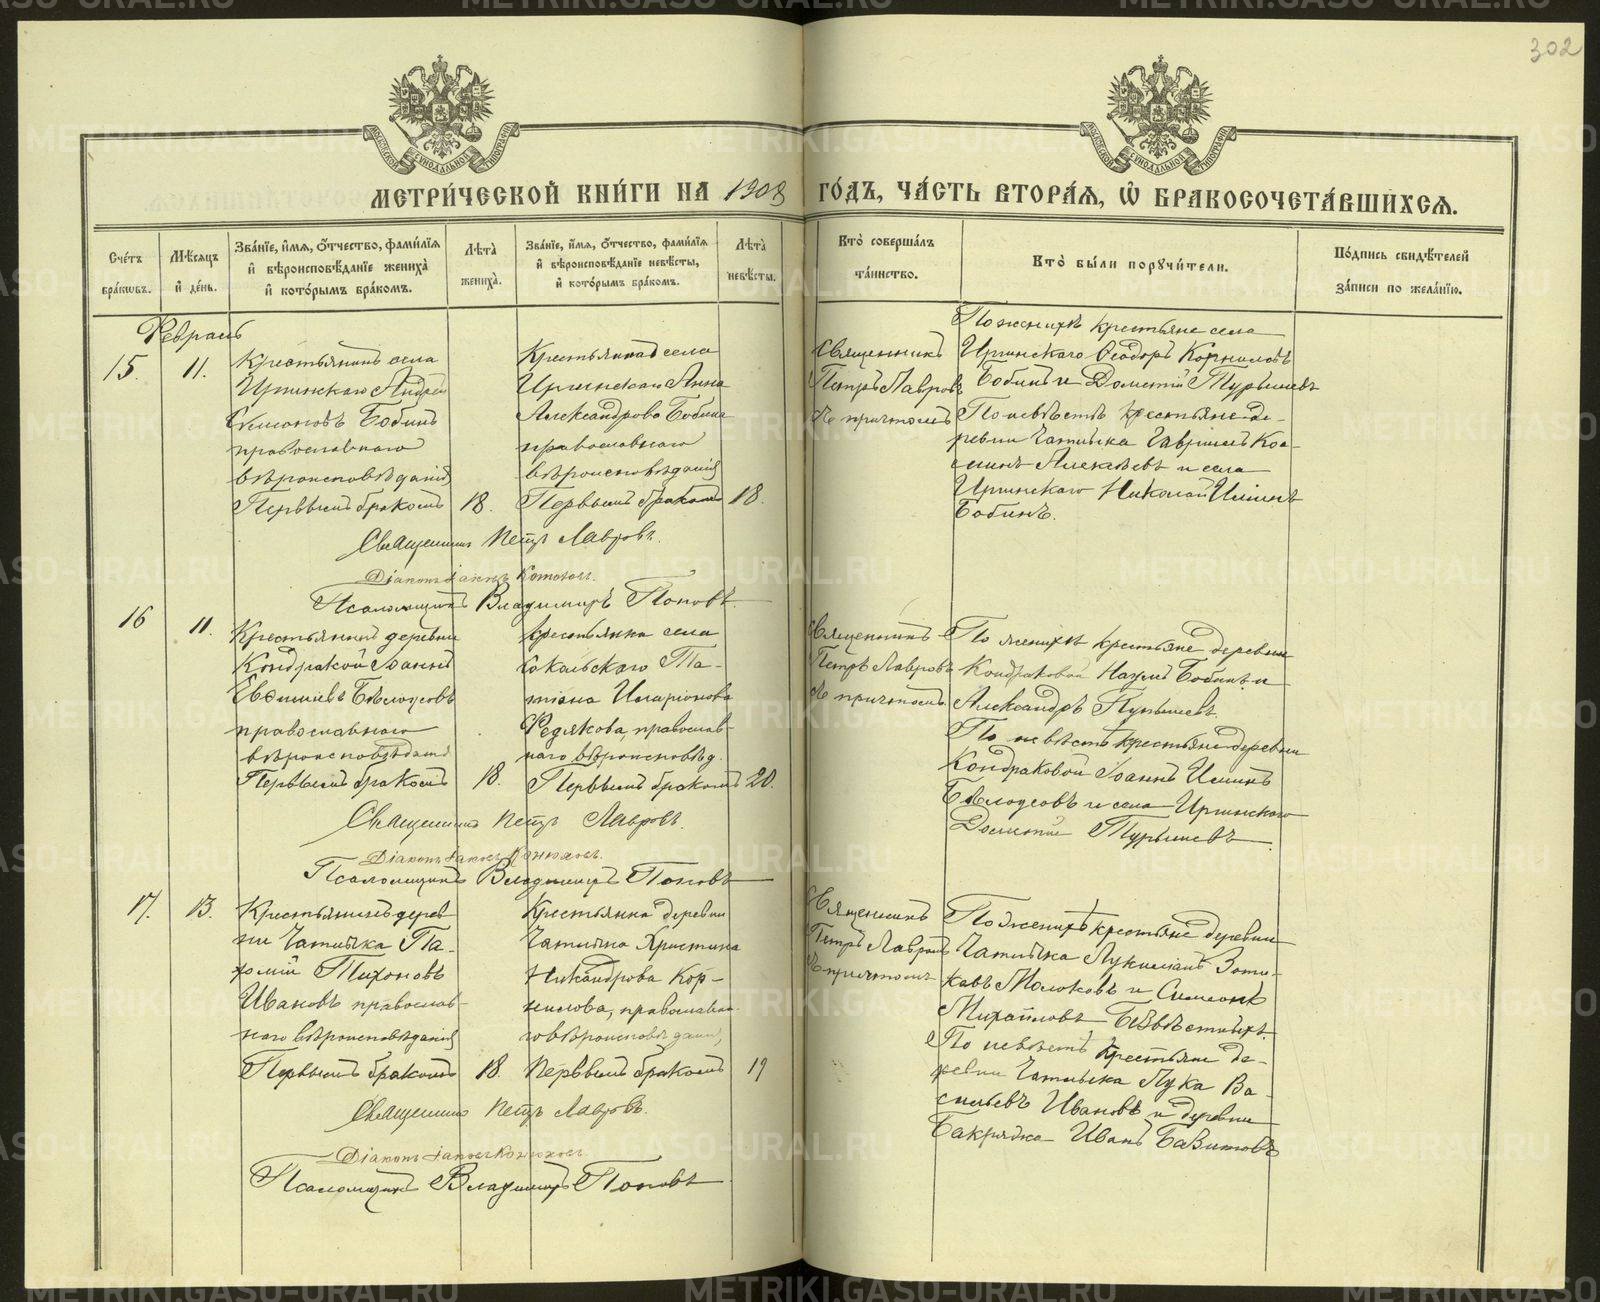 302
МОСКОВСКОЙ СѴНОДАЛЬНОЙ ТИПОГРАФІИ
МОСКОВСКОЙ СѴНОДАЛЬНОЙ ТИПОГРАФІИ
МЕТРИ́ЧЕСКОЙ КНИ́ГИ НА 1908 ГО́ДЪ, ЧА́СТЬ ВТОРА́Я, Ѡ҆ БРАКОСОЧЕТА́ВШИХСЯ.
Сче́тъ бра́кѡвъ.
Мѣ́сяцъ и҆ де́нь.
Зва́нїе, и҆́мя, ѻ҆́тчество, фами́лїя и҆ вѣроисповѣ́данїе жениха̀ и҆ кото́рымъ бра́комъ.
Лѣта̀ жениха̀.
Зва́нїе, и҆́мя, ѻ҆́тчество, фами́лїя и҆ вѣроисповѣ́данїе невѣ́сты, и҆ кото́рымъ бра́комъ.
Лѣта̀ невѣ́сты.
Кто̀ соверша́лъ та́инство.
Кто̀ бы́ли порꙋчи́тели.
По́дпись свидѣ́телей за́писи по жела́нїю.
Февраль
15.
11.
Крестьянинъ села
Иргинскаго Андрей
Симоновъ Бобинъ
православнаго
вѣроисповѣданія
Первымъ бракомъ
18.
Крестьянка села
Иргинскаго Анна
Александрова Бобина
православнаго
вѣроисповѣданія
Первымъ бракомъ
18.
Священникъ
Петръ Лавровъ
съ причтомъ
По женихѣ крестьяне села
Иргинскаго Ѳеодоръ Корниловъ
Бобинъ и Дометій Турышевъ
По невѣстѣ крестьяне де-
ревни Чатлыка Гавріилъ Кос-
минъ Алексѣевъ и села
Иргинскаго Николай Илінъ
Бобинъ.
Священникъ Петръ Лавровъ.
Діаконъ Іаковъ Конюховъ.
Псаломщикъ Владимиръ Поповъ
16
11.
Крестьянинъ деревни
Кондраковой Іоаннъ
Евѳиміевъ Бѣлоусовъ
православнаго
вѣроисповѣданія
Первымъ бракомъ
18.
Крестьянка села
Сокальскаго Та-
тіана Иларіонова
Федякова, православ-
наго вѣроисповѣд.
Первымъ бракомъ
20.
Священникъ
Петръ Лавровъ
съ причтомъ
По женихѣ крестьяне деревни
Кондраковой Наумъ Бобинъ и
Александръ Пупышевъ.
По невѣстѣ крестьяне деревни
Кондраковой Іоаннъ Илінъ
Бѣлоусовъ и села Иргинскаго
Дометій Турышевъ.
Священникъ Петръ Лавровъ.
Діаконъ Іаковъ Конюховъ.
Псаломщикъ Владимиръ Поповъ
17.
13.
Крестьянинъ дерев-
ни Чатлыка Па-
хомій Тихоновъ
Ивановъ православ-
наго вѣроисповѣданія
Первымъ бракомъ
18.
Крестьянка деревни
Чатлыка Христина
Никандрова Кор-
нилова, православна-
го вѣроисповѣданія,
Первымъ бракомъ
19
Священникъ
Петръ Лавровъ
съ причтомъ
По женихѣ крестьяне деревни
Чатлыка Лукиліанъ Зоти-
ковъ Молоковъ и Симеонъ
Михайловъ Безвѣстныхъ.
По невѣстѣ крестьяне де-
ревни Чатлыка Лука Ва-
сильевъ Ивановъ и деревни
Бакряжа Иванъ
Священникъ Петръ Лавровъ.
Діаконъ Іаковъ Конюховъ.
Псаломщикъ Владимиръ Поповъ
METRIKI.GASO-URAL.RU